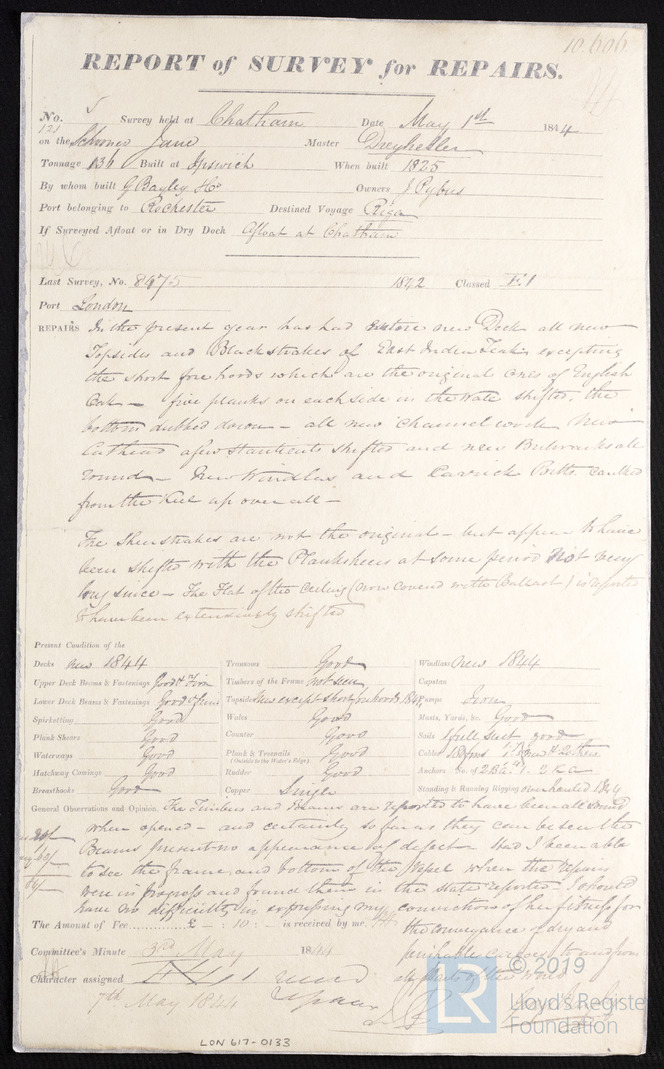 10.606
REPORT of SURVEY for REPAIRS.
No. Survey held at Chatham Date May 1st 1844
121
on the Schooner Jane Master
Tonnage 136 Built at Ipswich When built 1825
By whom built G Bayley Owners J Pybus
Port belonging to Rochester Destined Voyage Riga
If Surveyed Afloat or in Dry Dock Afloat at Chatham
Last Survey, No. 8475 1842 Classed E1
Port London
REPAIRS In the present year has had entire new Deck all new
Topsides and Blackstrakes of East India Teak excepting
the short fore hoods which are the original ones of English
Oak – five planks on each side in the Wale shifted, the
bottom dubbed down – all new Channel work New
Cathead a few Stantients shifted and new Bulwarks all
round – New Windlass and Carrick Bitts caulked
from the Keel up over all –
The Sheerstrakes are not the original – but appear to have
been shifted with the Planksheers at some period not very
long since – The Flat of the Ceiling (now coverd with Ballast) is reported
to have been extensively shifted
Present Condition of the
Decks new 1844 Transoms Good Windlass New 1844
Upper Deck Beams & Fastenings Good & Firm Timbers of the Frame not seen Capstan
Lower Deck Beams & Fastenings Good & firm Topsides New except short forehoods 1844 Pumps Iron
Spirketting Good Wales Good Masts, Yards, &c. Good
Plank Shears Good Counter Good Sails 1 full suit good
Waterways Good Plank & Treenails Good Cables
(Outside to the Water's Edge)
Hatchway Comings Good Rudder Good Anchors No. of 2 B
Breasthooks Good Copper Single Standing & Running Rigging overhauled 1844
General Observations and Opinion. The Timbers and Beams are reported to have been all sound
when opened – and certainly so far as they can be seen the
Beams present no appearance of defect – Had I been able
to see the frame and bottom of the Vessel when the repairs
were in progress and found them in the state reported I should
have no difficulty in expressing my convictions of her fitness for
The Amount of Fee...... £ – : 10 : – is received by me, the conveyance of dry and
Committee's Minute 3rd May 1844 perishable cargoes to and from
Character assigned all parts of the World
7th May 1844
© 2019
LR Lloyd's Register
Foundation
LON 617-0133